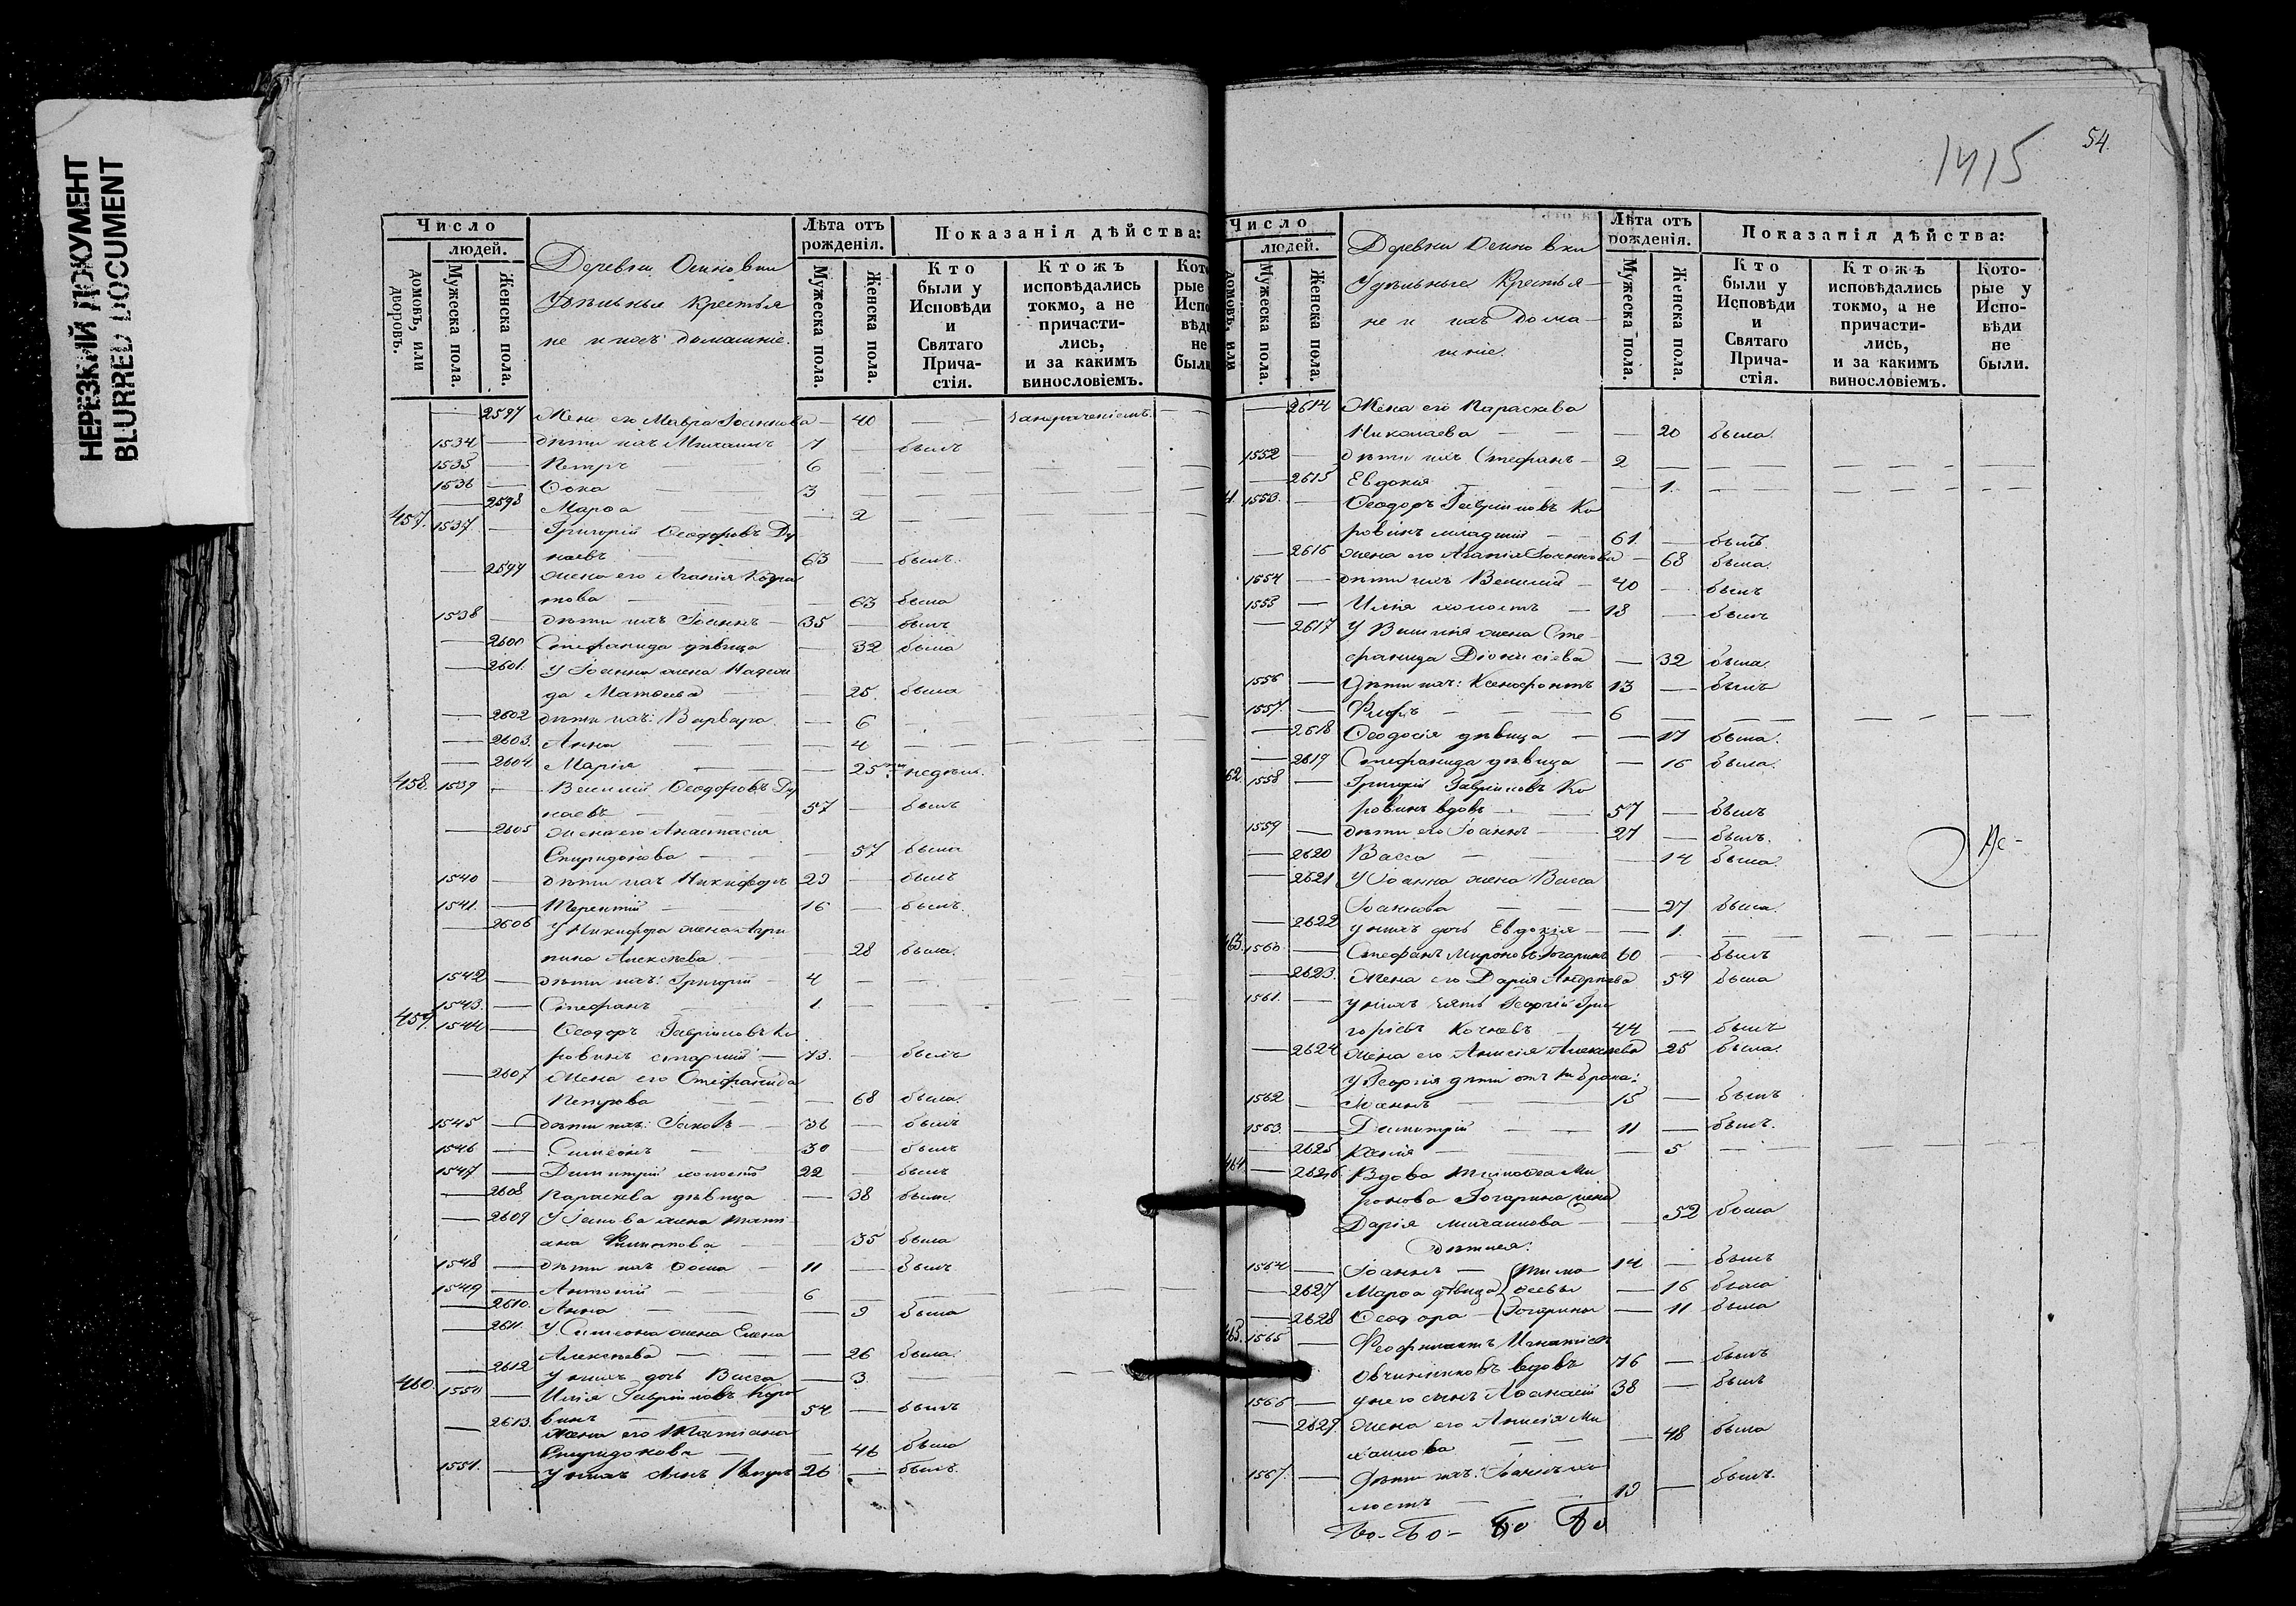 НЕРЕЗКИЙ ДОКУМЕНТ
BLURRED DOCUMENT
Число
людей.
домовъ, или дворовъ.
Мужеска пола.
Женска пола.
Деревни Осиновки
Удѣльные Крестья
не и ихъ домашніе.
Лѣта отъ рожденія.
Мужеска пола.
Женска пола.
Показанія дѣйства:
Кто были у Исповѣди и Святаго Прича-стія.
Ктожъ исповѣдались токмо, а не причасти-лись, и за какимъ винословіемъ.
2597 Жена его Мавра Іоаннова 40
1534 дѣти ихъ Михаилъ 7 былъ
1535 Петръ 6
1536 Ѳока 3
2598 Марѳа 2
457. 1537. Григорій Ѳеодоровъ Ду
наевъ 63 былъ.
2599 жена его Агапія Кодра
това 63 была
1538 дѣти ихъ Іоаннъ 35 былъ
2600 Стефанида дѣвица 32 была
2601. У Іоанна жена Надеж
да Матѳеева 25. была
2602 дѣти ихъ: Варвара 6
2603. Анна 4
2604. Марія 25 недѣль.
458. 1539 Василій Ѳеодоровъ Ду
наевъ 57 былъ
2605 жена его Анастасія
Спиридонова 57 была
1540 дѣти ихъ Никифоръ 29 былъ
1541. Терентій 16 былъ.
2606 У Никифора жена Агри
пина Алексѣева 28 была.
1542 дѣти ихъ: Григорій 4
1543. Стефанъ 1.
459. 1544 Ѳеодоръ Гавріиловъ Ко
ровинъ старшій 73. былъ
2607 Жена его Стефанида
Петрова 68 была.
1545 дѣти ихъ: Іаковъ 36 былъ
1546 Симеонъ 30 былъ
1547 Димитрій холостъ 22 былъ
2608 Параскева дѣвица 38 была
2609 У Іакова жена Тати
ана Филипова 35 была
1548 дѣти ихъ Ѳома 11 былъ
1549 Антоній 6
2610. Анна 9 была
2611. У Симеона жена Елена
Алексѣева 26 была.
2612 У нихъ дочь Васса 3.
460. 1550 Илія Гавріиловъ Коро
винъ 54 былъ
2613. жена его Татіана
Спиридонова 46 была
1551. У нихъ сынъ Петръ 26 былъ.
1415
54.
Число
людей.
домовъ, или
Мужеска пола.
Женска пола.
Деревни Осиновки
Удѣльные Крестья
не и ихъ Дома
шніе.
Лѣта отъ рожденія.
Мужеска пола.
Женска пола.
Показанія дѣйства:
Кто были у Исповѣди и Святаго Прича-стія.
Ктожъ исповѣдались токмо, а не причасти-лись, и за какимъ винословіемъ.
Кото-рые у Испо-вѣди не были.
2614 Жена его Параскева
Николаева 20 была.
1552 дѣти ихъ Стефанъ 2
2615 Евдокія 1.
1553. Ѳеодоръ Гавріиловъ Ко
ровинъ младшій 61. былъ.
2616 жена его Агапія Іоаннова 68 была.
1554 дѣти ихъ Василій 40 былъ
1555 Илія холостъ 18 былъ
2617 У Василія жена Сте
фанида Діонисіева 32 была.
1556 Дѣти ихъ: Ксенофонтъ 13 былъ
1557. 6
2618 Ѳеодосія дѣвица 17 была.
2619 Стефанида дѣвица 16 была.
62. 1558 Григорій Гавріиловъ Ко
ровинъ вдовъ 57 былъ
1559 дѣти его Іоаннъ 27 былъ.
2620 Васса 14 была.
2621 У Іоанна жена Васса
Іоаннова 27 была.
2622 у нихъ дочь Евдокія 1.
463. 1560 Стефанъ Мироновъ Гогаринъ 60 былъ
2623. Жена его Дарія Андреева 59 была
1561. у нихъ зять Георгій Гри
горіевъ Кочневъ 44 былъ
2624 жена его Анисія Алексѣева 25 была.
У Георгія дѣти отъ 1 брака:
1562 Іоаннъ 15 былъ
1563. Димитрій 11 былъ.
2625 Ксенія 5
464 2626 Вдова Тимоѳея Ми
ронова Гогарина жена
Дарія Михаилова 52 была
дѣти ея:
1564 Іоаннъ Тимо 14 былъ
2627 Марѳа дѣвица ѳеевы 16 была
2628 Ѳеодора Гогарины 11 была
465. 1565 Феофилактъ Игнатіевъ
Овчинниковъ вдовъ 76 былъ
1566 у него сынъ Аѳанасій 38 былъ
2629. жена его Анисія Ми
хаилова 48 была
1567. Дѣти ихъ: Іоаннъ хо
лостъ 19 былъ.